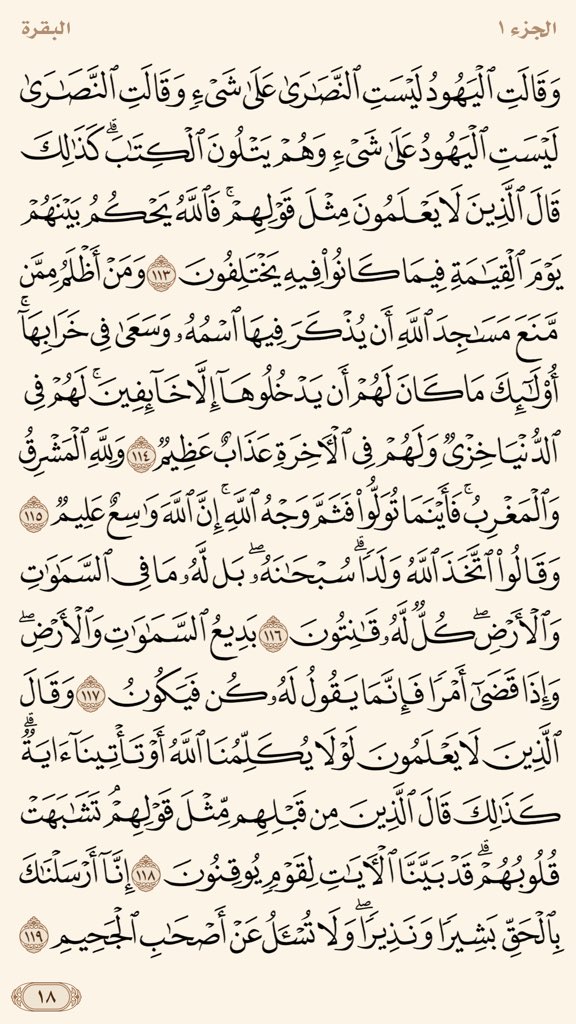 الجزء ١
البقرة
وَقَالَتِ ٱلْيَهُودُ لَيْسَتِ ٱلنَّصَٰرَىٰ عَلَىٰ شَىْءٍ وَقَالَتِ ٱلنَّصَٰرَىٰ
لَيْسَتِ ٱلْيَهُودُ عَلَىٰ شَىْءٍ وَهُمْ يَتْلُونَ ٱلْكِتَٰبَ ۗ كَذَٰلِكَ
قَالَ ٱلَّذِينَ لَا يَعْلَمُونَ مِثْلَ قَوْلِهِمْ ۚ فَٱللَّهُ يَحْكُمُ بَيْنَهُمْ
يَوْمَ ٱلْقِيَٰمَةِ فِيمَا كَانُوا۟ فِيهِ يَخْتَلِفُونَ ١١٣ وَمَنْ أَظْلَمُ مِمَّن
مَّنَعَ مَسَٰجِدَ ٱللَّهِ أَن يُذْكَرَ فِيهَا ٱسْمُهُۥ وَسَعَىٰ فِى خَرَابِهَآ ۚ
أُو۟لَٰٓئِكَ مَا كَانَ لَهُمْ أَن يَدْخُلُوهَآ إِلَّا خَآئِفِينَ ۚ لَهُمْ فِى
ٱلدُّنْيَا خِزْىٌ وَلَهُمْ فِى ٱلْءَاخِرَةِ عَذَابٌ عَظِيمٌ ١١٤ وَلِلَّهِ ٱلْمَشْرِقُ
وَٱلْمَغْرِبُ ۚ فَأَيْنَمَا تُوَلُّوا۟ فَثَمَّ وَجْهُ ٱللَّهِ ۚ إِنَّ ٱللَّهَ وَٰسِعٌ عَلِيمٌ ١١٥
وَقَالُوا۟ ٱتَّخَذَ ٱللَّهُ وَلَدًا ۗ سُبْحَٰنَهُۥ ۖ بَل لَّهُۥ مَا فِى ٱلسَّمَٰوَٰتِ
وَٱلْأَرْضِ ۖ كُلٌّ لَّهُۥ قَٰنِتُونَ ١١٦ بَدِيعُ ٱلسَّمَٰوَٰتِ وَٱلْأَرْضِ ۖ
وَإِذَا قَضَىٰٓ أَمْرًا فَإِنَّمَا يَقُولُ لَهُۥ كُن فَيَكُونُ ١١٧ وَقَالَ
ٱلَّذِينَ لَا يَعْلَمُونَ لَوْلَا يُكَلِّمُنَا ٱللَّهُ أَوْ تَأْتِينَآ ءَايَةٌ ۗ
كَذَٰلِكَ قَالَ ٱلَّذِينَ مِن قَبْلِهِم مِّثْلَ قَوْلِهِمْ ۘ تَشَٰبَهَتْ
قُلُوبُهُمْ ۗ قَدْ بَيَّنَّا ٱلْءَايَٰتِ لِقَوْمٍ يُوقِنُونَ ١١٨ إِنَّآ أَرْسَلْنَٰكَ
بِٱلْحَقِّ بَشِيرًا وَنَذِيرًا ۖ وَلَا تُسْـَٔلُ عَنْ أَصْحَٰبِ ٱلْجَحِيمِ ١١٩
١٨